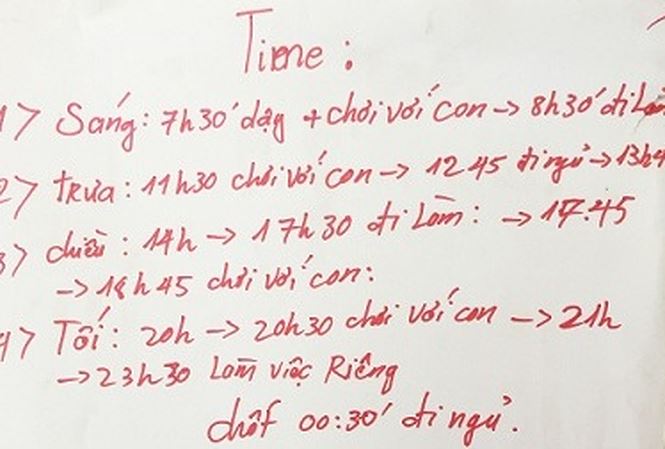 Time :
1> Sáng: 7h30' dậy + chơi với con -> 8h30' đi làm
2> trưa: 11h30 chơi với con -> 1245 đi ngủ -> 13h4
3> chiều: 14h -> 17h30 đi làm: -> 17.45
-> 18h45 chơi với con:
4> Tối: 20h -> 20h30 chơi với con -> 21h
-> 23h30 làm việc Riêng
chốt 00:30' đi ngủ.